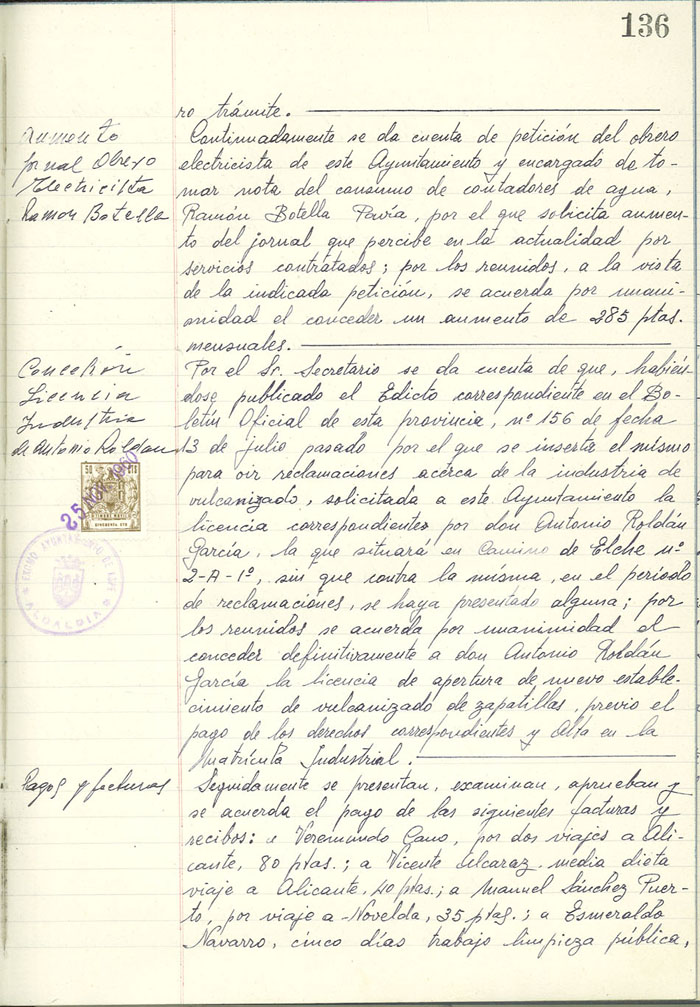 136
ro trámite.
Aumento
Jornal Obrero
Electricista
Ramon Botella
Continuadamente se da cuenta de petición del obrero
electricista de este Ayuntamiento y encargado de to-
mar nota del consumo de contadores de agua,
Ramón Botella Pavía, por el que solicita aumen-
to del jornal que percibe en la actualidad por
servicios contratados; por los reunidos, a la vista
de la indicada petición, se acuerda por unani-
midad el conceder un aumento de 285 ptas.
mensuales.
Concesión
Licencia
Industria
de Antonio Roldan
Por el Sr. Secretario se da cuenta de que, habién
dose publicado el Edicto correspondiente en el Bo-
letín Oficial de esta provincia, nº 156 de fecha
13 de julio pasado por el que se inserta el mismo
para oir reclamaciones acerca de la industria de
vulcanizado, solicitada a este Ayuntamiento la
licencia correspondiente por don Antonio Roldán
García, la que situará en Camino de Elche nº
2-A-1º, sin que contra la misma, en el período
de reclamaciones, se haya presentado alguna; por
los reunidos se acuerda por unanimidad el
conceder definitivamente a don Antonio Roldán
García la licencia de apertura de nuevo estable-
cimiento de vulcanizado de zapatillas, previo el
pago de los derechos correspondientes y Alta en la
Matrícula Industrial.
25 NOV 1960
50 CTS
ALCALDIA
Pagos y facturas
Seguidamente se presentan, examinan, aprueban y
se acuerda el pago de las siguientes facturas y
recibos: a Veremundo Cano, por dos viajes a Ali-
cante, 80 ptas.; a Vicente Alcaraz media dieta
viaje a Alicante, 40 ptas.; a Manuel Sánchez Puer-
to, por viaje a Novelda, 35 ptas.; a Esmeraldo
Navarro, cinco días trabajo limpieza pública,